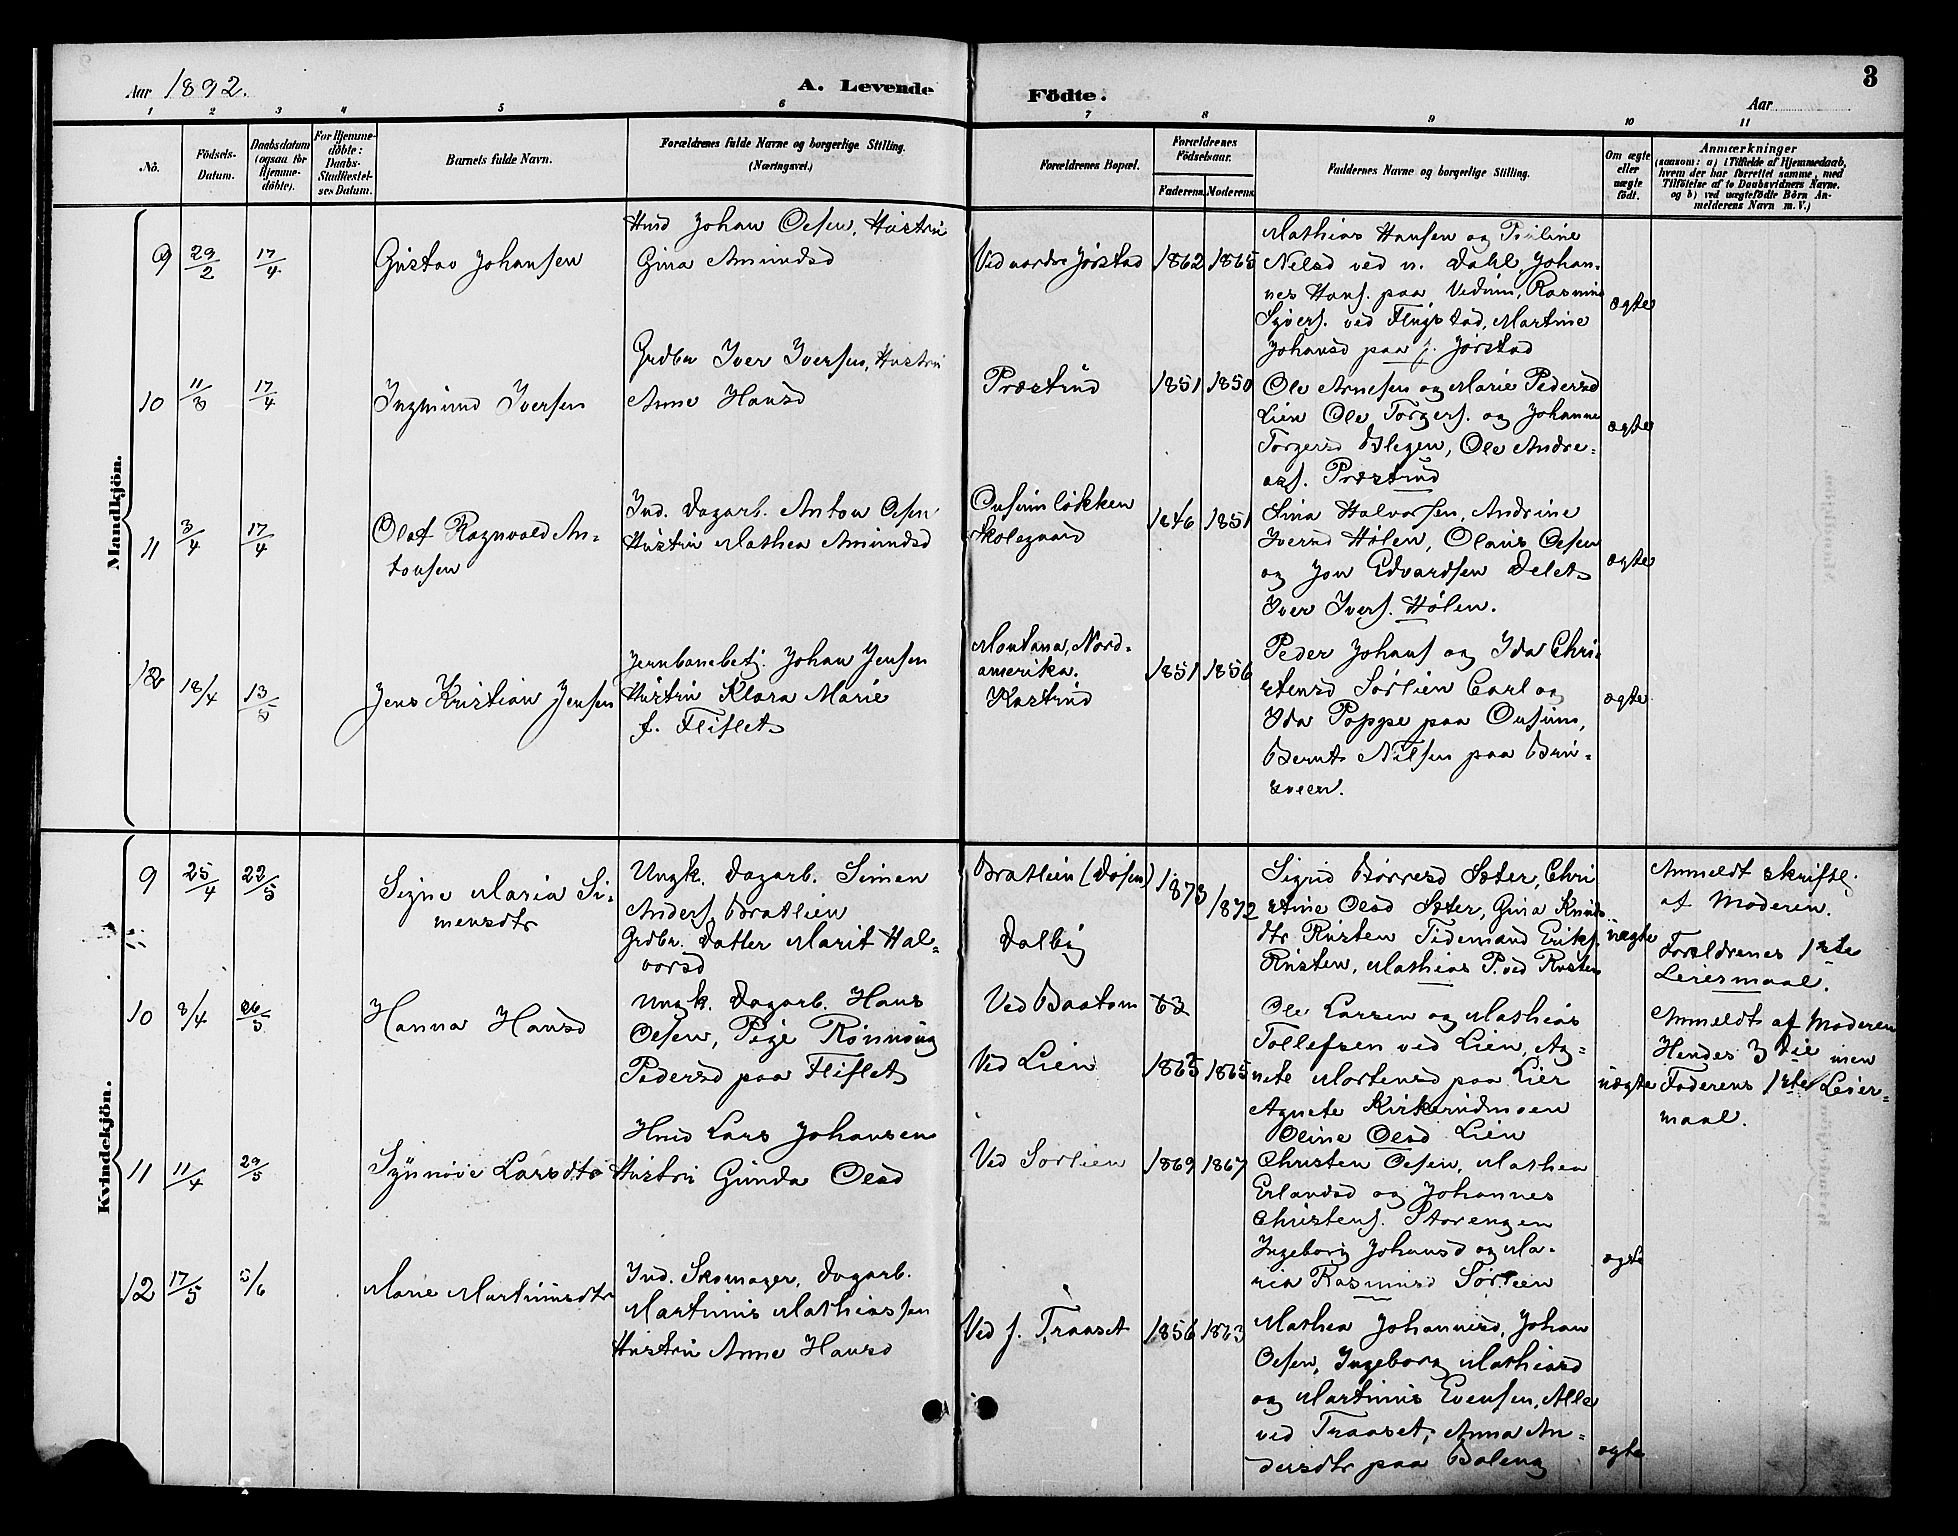 Aar 1892.
A. Levende Födte.
3
Aar
1 2 3 4 5 6 7 8 9 10 11
No.
Födsels-Datum.
Daabsdatum (ogsaa for Hjemme-døbte).
For Hjemme-døbte: Daabs-Stadfæstel-ses Datum.
Barnets fulde Navn.
Forældrenes fulde Navne og borgerlige Stilling. (Næringsvei.)
Forældrenes Bopæl.
Forældrenes Födselsaar.
Faderens. Moderens.
Faddernes Navne og borgerlige Stilling.
Om ægte eller uægte födt.
Anmærkninger
(saasom: a) i Tilfælde af Hjemmedaab,
hvem der har forrettet samme, med
Tilföielse af to Daabsvidners Navne.
og b) ved uægtefödte Börn An-
melderens Navn m. V.)
Mandkjön.
9 29/2 17/4
Gustav Johansen
Husd Johan Olsen, Hustru
Gina Amundsd
Ved nordre Jørstad
1862 1865
Mathias Hansen og Pauline
Nelsd ved n. Dahl, Johan-
nes Hans. paa Vedum, Rasmus
Syvers. ved Flugstad, Martine
Johansd paa s. Jørstad
ægte
10 11/3 17/4
Ingmund Iversen
Grdbr Iver Iversen, Hustru
Anne Hansd
Præstrud
1851 1850
Ole Arnesen og Marie Pedersd
Lien Ole Torgers. og Johanne
Torgersd Blegen, Ole Andre-
ass. Præstrud
ægte
11 3/4 17/4
Olaf Ragnvald An-
tonsen
Ind. Dagarb. Anton Olsen
Hustru Mathea Amundsd
Ousumløkken
Skolegaard
1846 1851
Sina Halvorsen, Andrine
Iversd Hølen, Olaus Olsen
og Jon Edvardsen Delet
Iver Ivers. Hølen.
ægte
12 18/4 13/8
Jens Kristian Jensen
Jernbanebetj. Johan Jensen
Hustru Klara Marie
f. Fliflet
Montana, Nord-
amerika.
Kastrud
1851 1856
Peder Johans og Ida Chri-
stensd Sørlien Carl og
Ida Poppe paa Ousum,
Bernt Nilsen paa Bru-
sveen.
ægte
Kvindekjön.
9 25/4 22/5
Signe Maria Si-
mensdtr
Ungk. Dagarb. Simen
Anders. Bratlien
Grdbr. Datter Marit Hal-
vorsd
Bratlien (Døsen)
Dalby
1873 1872
Sigrid Børresd Sæter, Chri
stine Olsd Sæter, Gina Knuds-
dtr Rusten Tidemand Eriks.
Rusten, Mathias P. ved Rusten
uægte
Anmeldt skriftl.
af Moderen.
Forældrenes 1ste
Leiersmaal.
10 8/4 26/5
Hanna Hansd
Ungk. Dagarb. Hans
Olsen, Pige Rønnaug
Pedersd paa Fliflet
Ved Baatom
Ved Lien
63
1865 1865
Ole Larsen og Mathias
Tollefsen ved Lien, Ag-
nete Mortensd paa Lier
Agnete Kirkerudmoen
Oline Olsd Lien
uægte
Anmeldt af Moderen
Hendes 3die men
Faderens 1ste Leier-
maal.
11 11/4 29/5
Synnøve Larsdtr
Husd Lars Johansen
Hustru Gunda Olsd
Ved Sørlien
1869 1867
Christen Olsen, Mathea
Erlandsd og Johannes
Christens. Storengen
Ingeborg Johansd og Ma-
ria Rasmusd Sørlien
ægte
12 17/5 5/6
Marie Martinusdtr
Ind. Skomager, Dagarb.
Martinus Mathiassen
Hustru Anne Hansd
Ved s. Traaset
1856 1863
Mathea Johannesd, Johan
Olsen, Ingeborg Mathiasd
og Martinus Evensen, Alle
ved Traaset, Anna An-
dersdtr paa Baleng
ægte